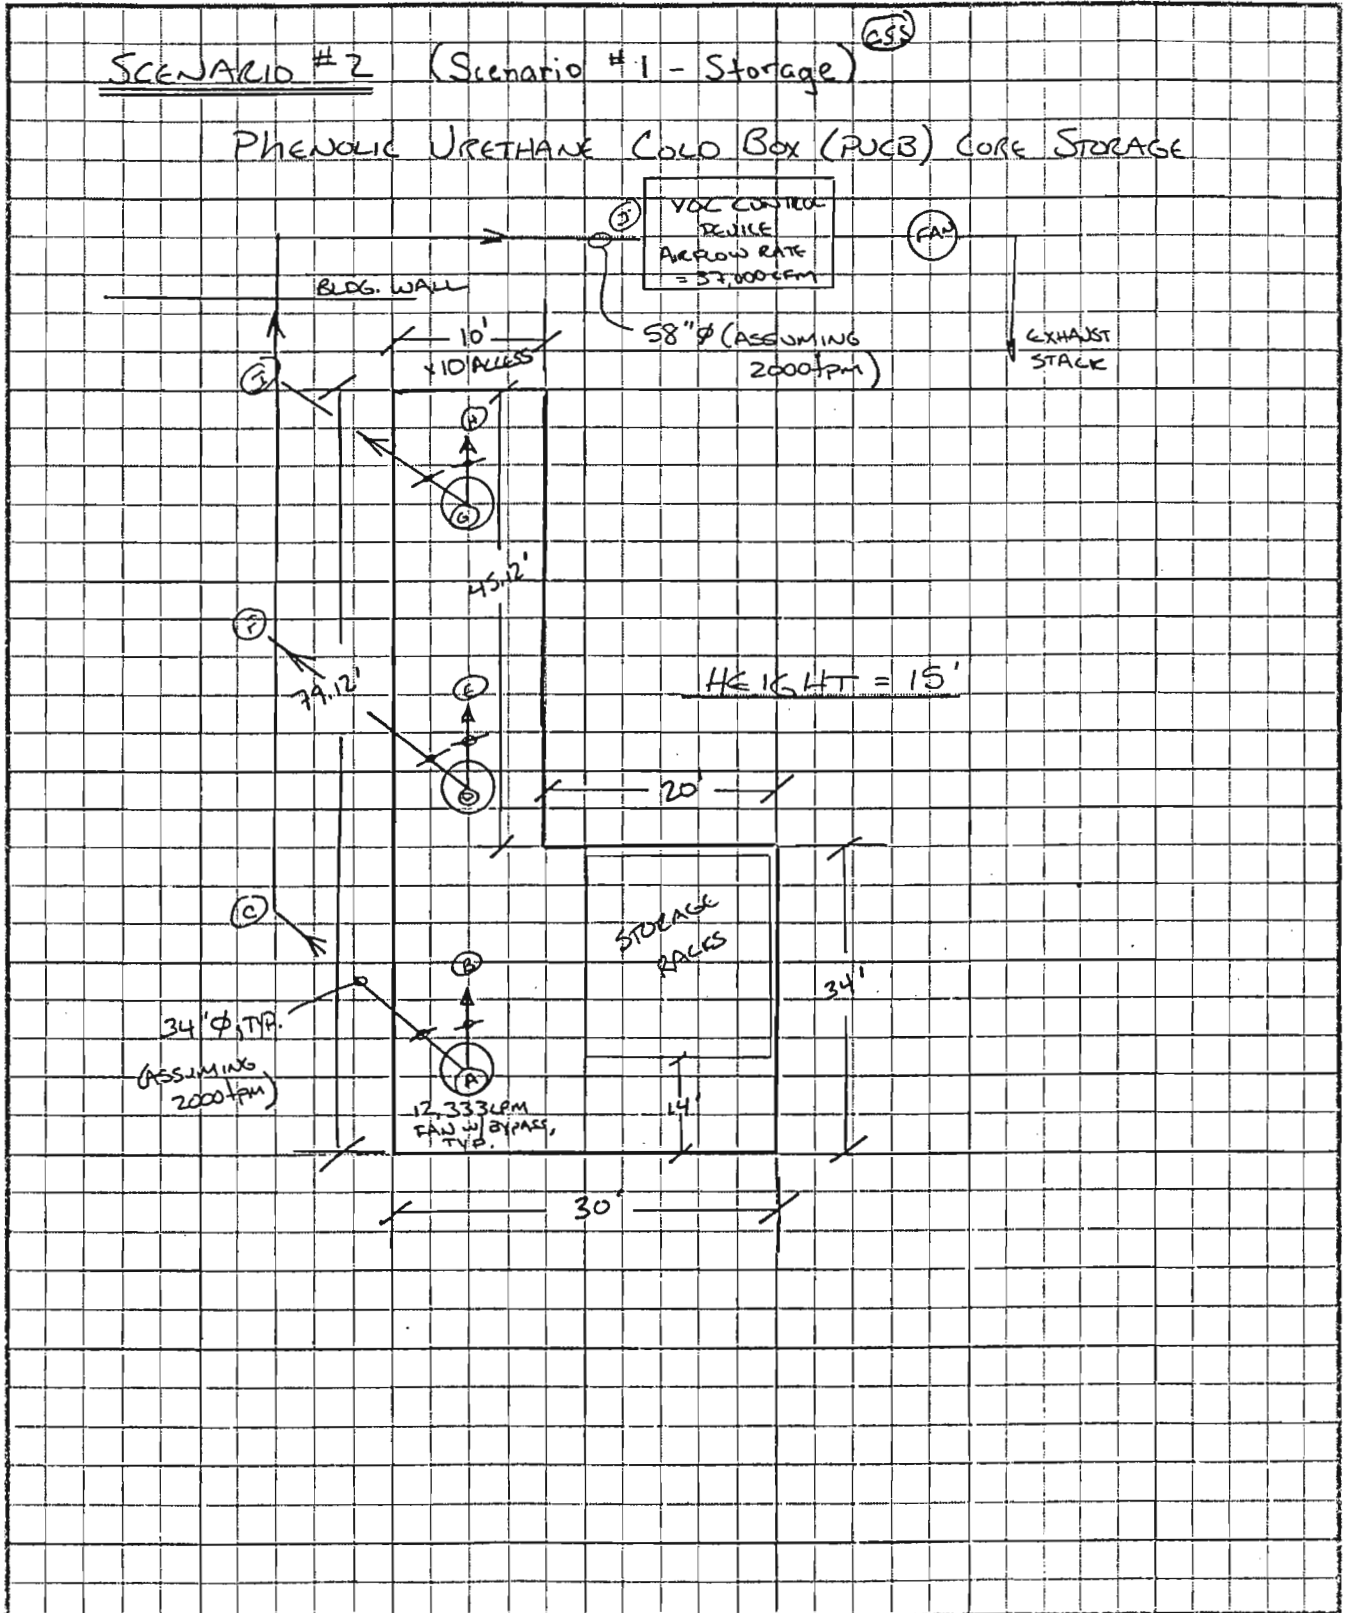 CSS
SCENARIO #2 (Scenario #1 - Storage)
PHENOLIC URETHANE COLD BOX (PUCB) CORE STORAGE
J
VOC CONTROL
DEVICE
AIRFLOW RATE
= 37,000 CFM
FAN
BLDG. WALL
58"Ø (ASSUMING
2000fpm)
EXHAUST
STACK
10'
x10' ACCESS
I
H
G
45.12'
F
79.12'
E
HEIGHT = 15'
D
20'
C
STORAGE
RACKS
B
34'
34"Ø, TYP.
(ASSUMING
2000fpm)
A
12,333 CFM
FAN W/ BYPASS,
TYP.
14'
30'